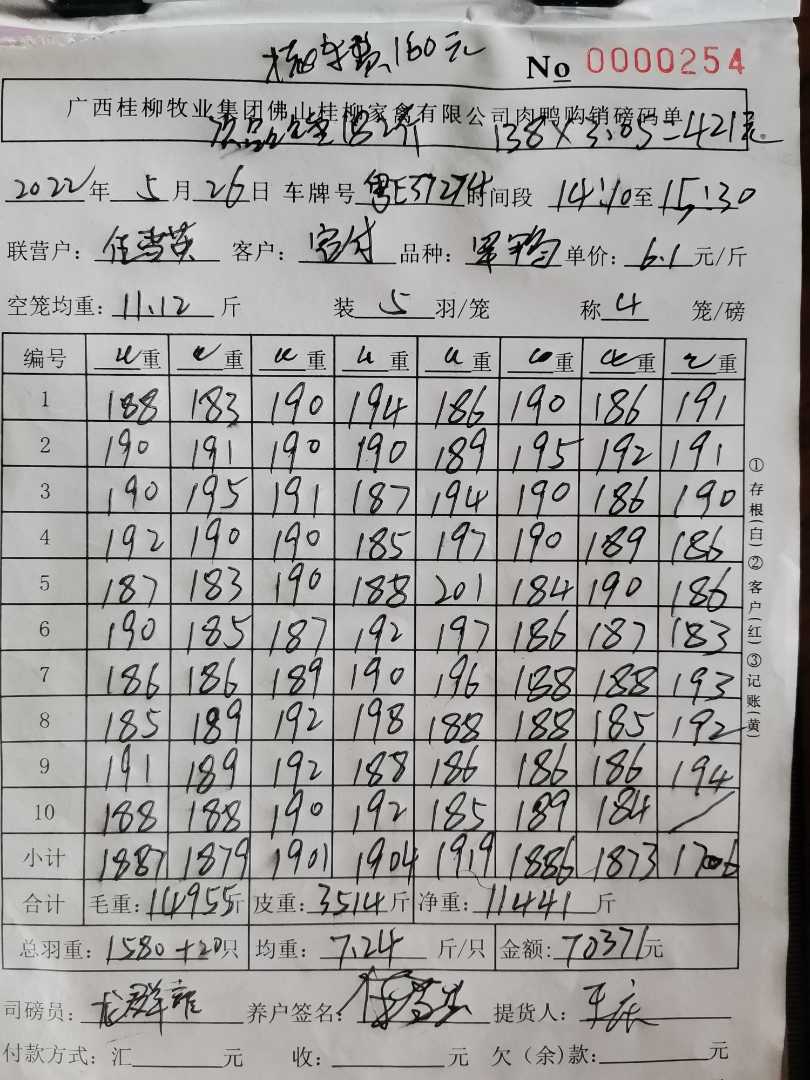 费160元
No 0000254
广西桂柳牧业集团佛山桂柳家禽有限公司肉鸭购销磅码单
次品 138×3.05=421元
2022年 5月26日 车牌号 粤E37274 时间段 14:10至15:30
联营户： 客户： 品种： 单价：6.1元/斤
空笼均重：11.12斤 装5羽/笼 称4笼/磅
编号 重 重 重 重 重 重 重 重
1 188 183 190 194 186 190 186 191
2 190 191 190 190 189 195 192 191
3 190 195 191 187 194 190 186 190
4 192 190 190 185 197 190 189 186
5 187 183 190 188 201 184 190 186
6 190 185 187 192 197 186 187 183
7 186 186 189 190 196 188 188 193
8 185 189 192 198 188 188 185 192
9 191 189 192 188 186 186 186 194
10 188 188 190 192 185 189 184 /
小计 1887 1879 1901 1904 1919 1886 1873 1706
合计 毛重：14955斤 皮重：3514斤 净重：11441斤
总羽重：1580+20只 均重：7.24斤/只 金额：70371元
司磅员： 养户签名： 提货人：
付款方式：汇 元 收： 元 欠（余）款： 元
①存根(白)②客户(红)③记账(黄)